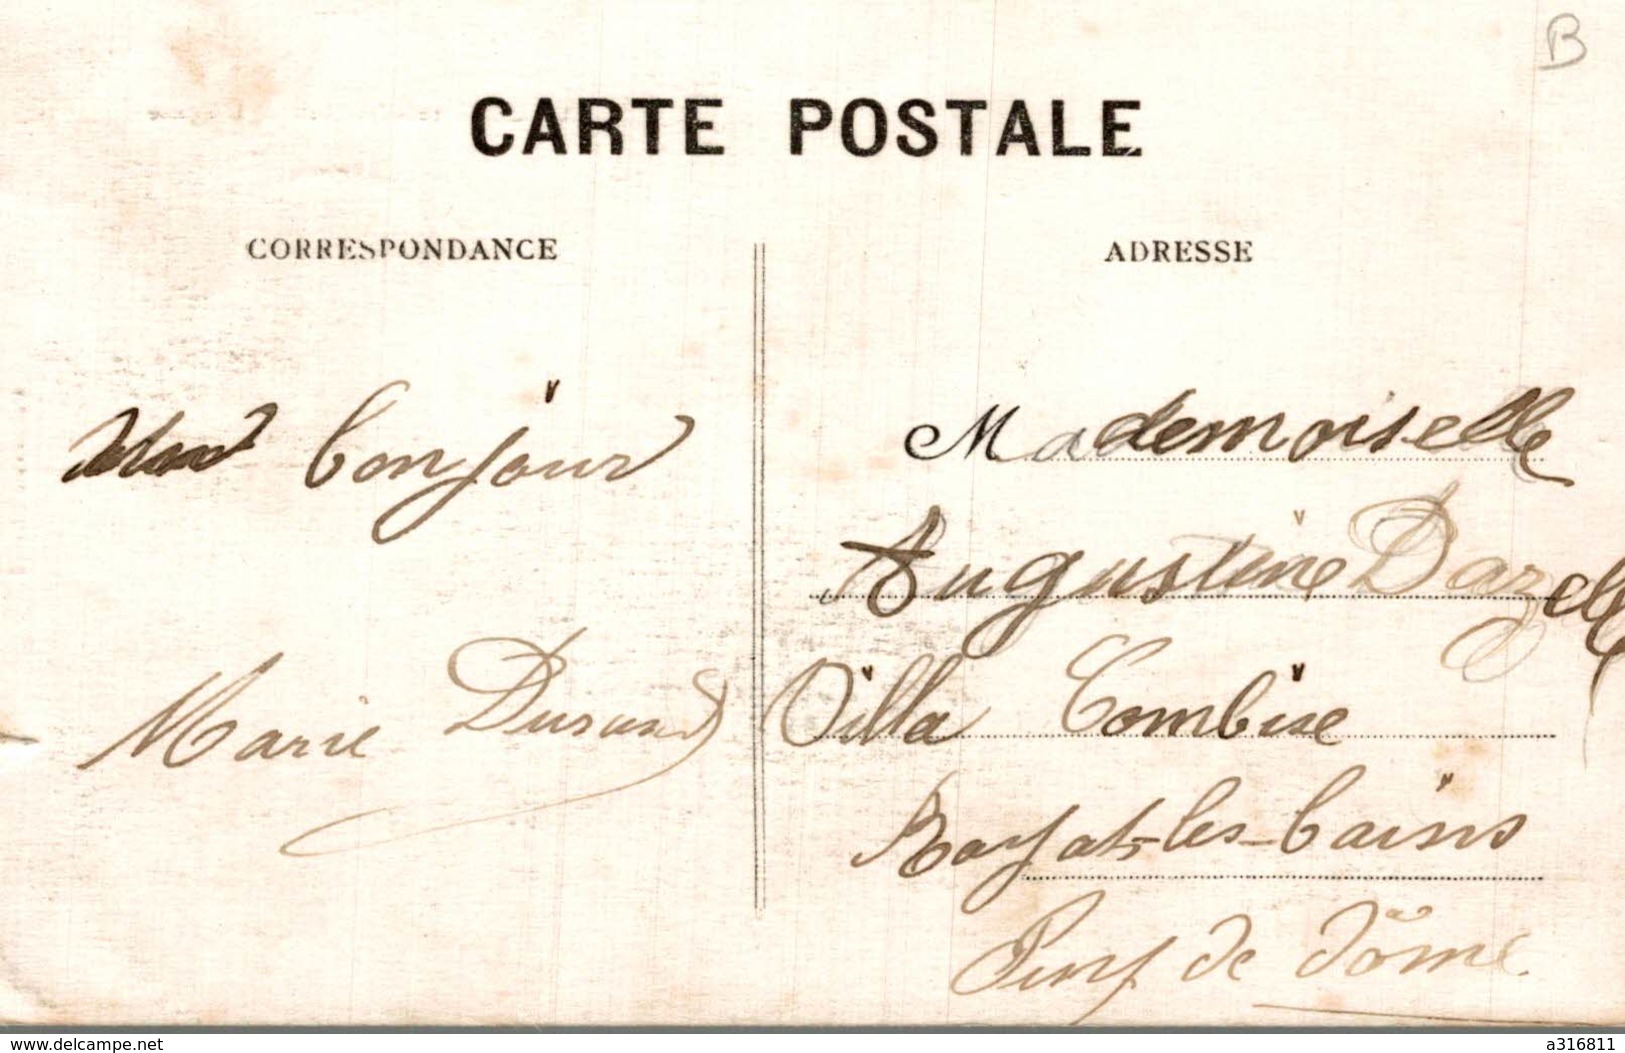 B
CARTE POSTALE
CORRESPONDANCE
bonjour
Marie Durand
ADRESSE
Mademoiselle
Augustine Dazel
Villa Combise
Royat-les-bains
Puy de dôme
www.delcampe.net
a316811